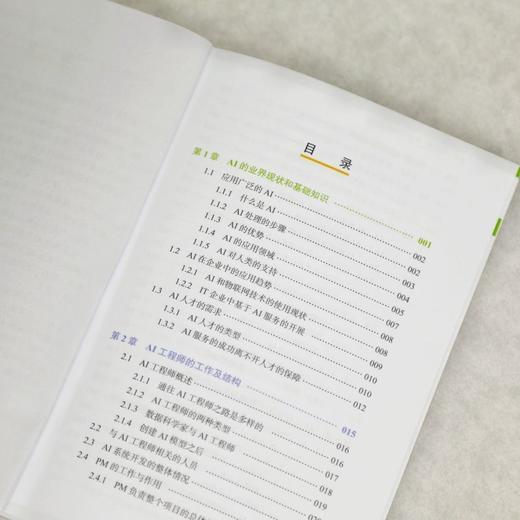 目 录
第1章 AI 的业界现状和基础知识 001
1.1 应用广泛的 AI 002
1.1.1 什么是 AI 002
1.1.2 AI 处理的步骤 003
1.1.3 AI 的优势 004
1.1.4 AI 的应用领域 005
1.1.5 AI 对人类的支持 007
1.2 AI 在企业中的应用趋势 008
1.2.1 AI 和物联网技术的使用现状 008
1.2.2 IT 企业中基于 AI 服务的开展 009
1.3 AI 人才的需求 010
1.3.1 AI 人才的类型 010
1.3.2 AI 服务的成功离不开人才的保障 012
第2章 AI 工程师的工作及结构 015
2.1 AI 工程师概述 016
2.1.1 通往 AI 工程师之路是多样的 016
2.1.2 AI 工程师的两种类型 017
2.1.3 数据科学家与 AI 工程师 018
2.1.4 创建 AI 模型之后 019
2.2 与 AI 工程师相关的人员
2.3 AI 系统开发的整体情况
2.4 PM 的工作与作用
2.4.1 PM 负责整个项目的总体